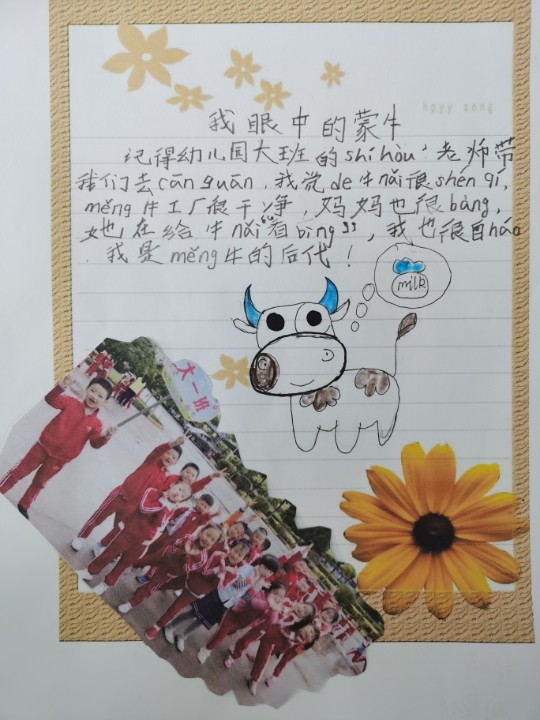 hapy song
我眼中的蒙牛
记得幼儿园大班的shíhòu：老师带
我们去cānguān，我觉de牛nǎi很shénqí，
měng牛工厂很干净，妈妈也很bàng，
她在给牛nǎi“看bìng”，我也很自háo
，我是měng牛的后代！
milk
大一班